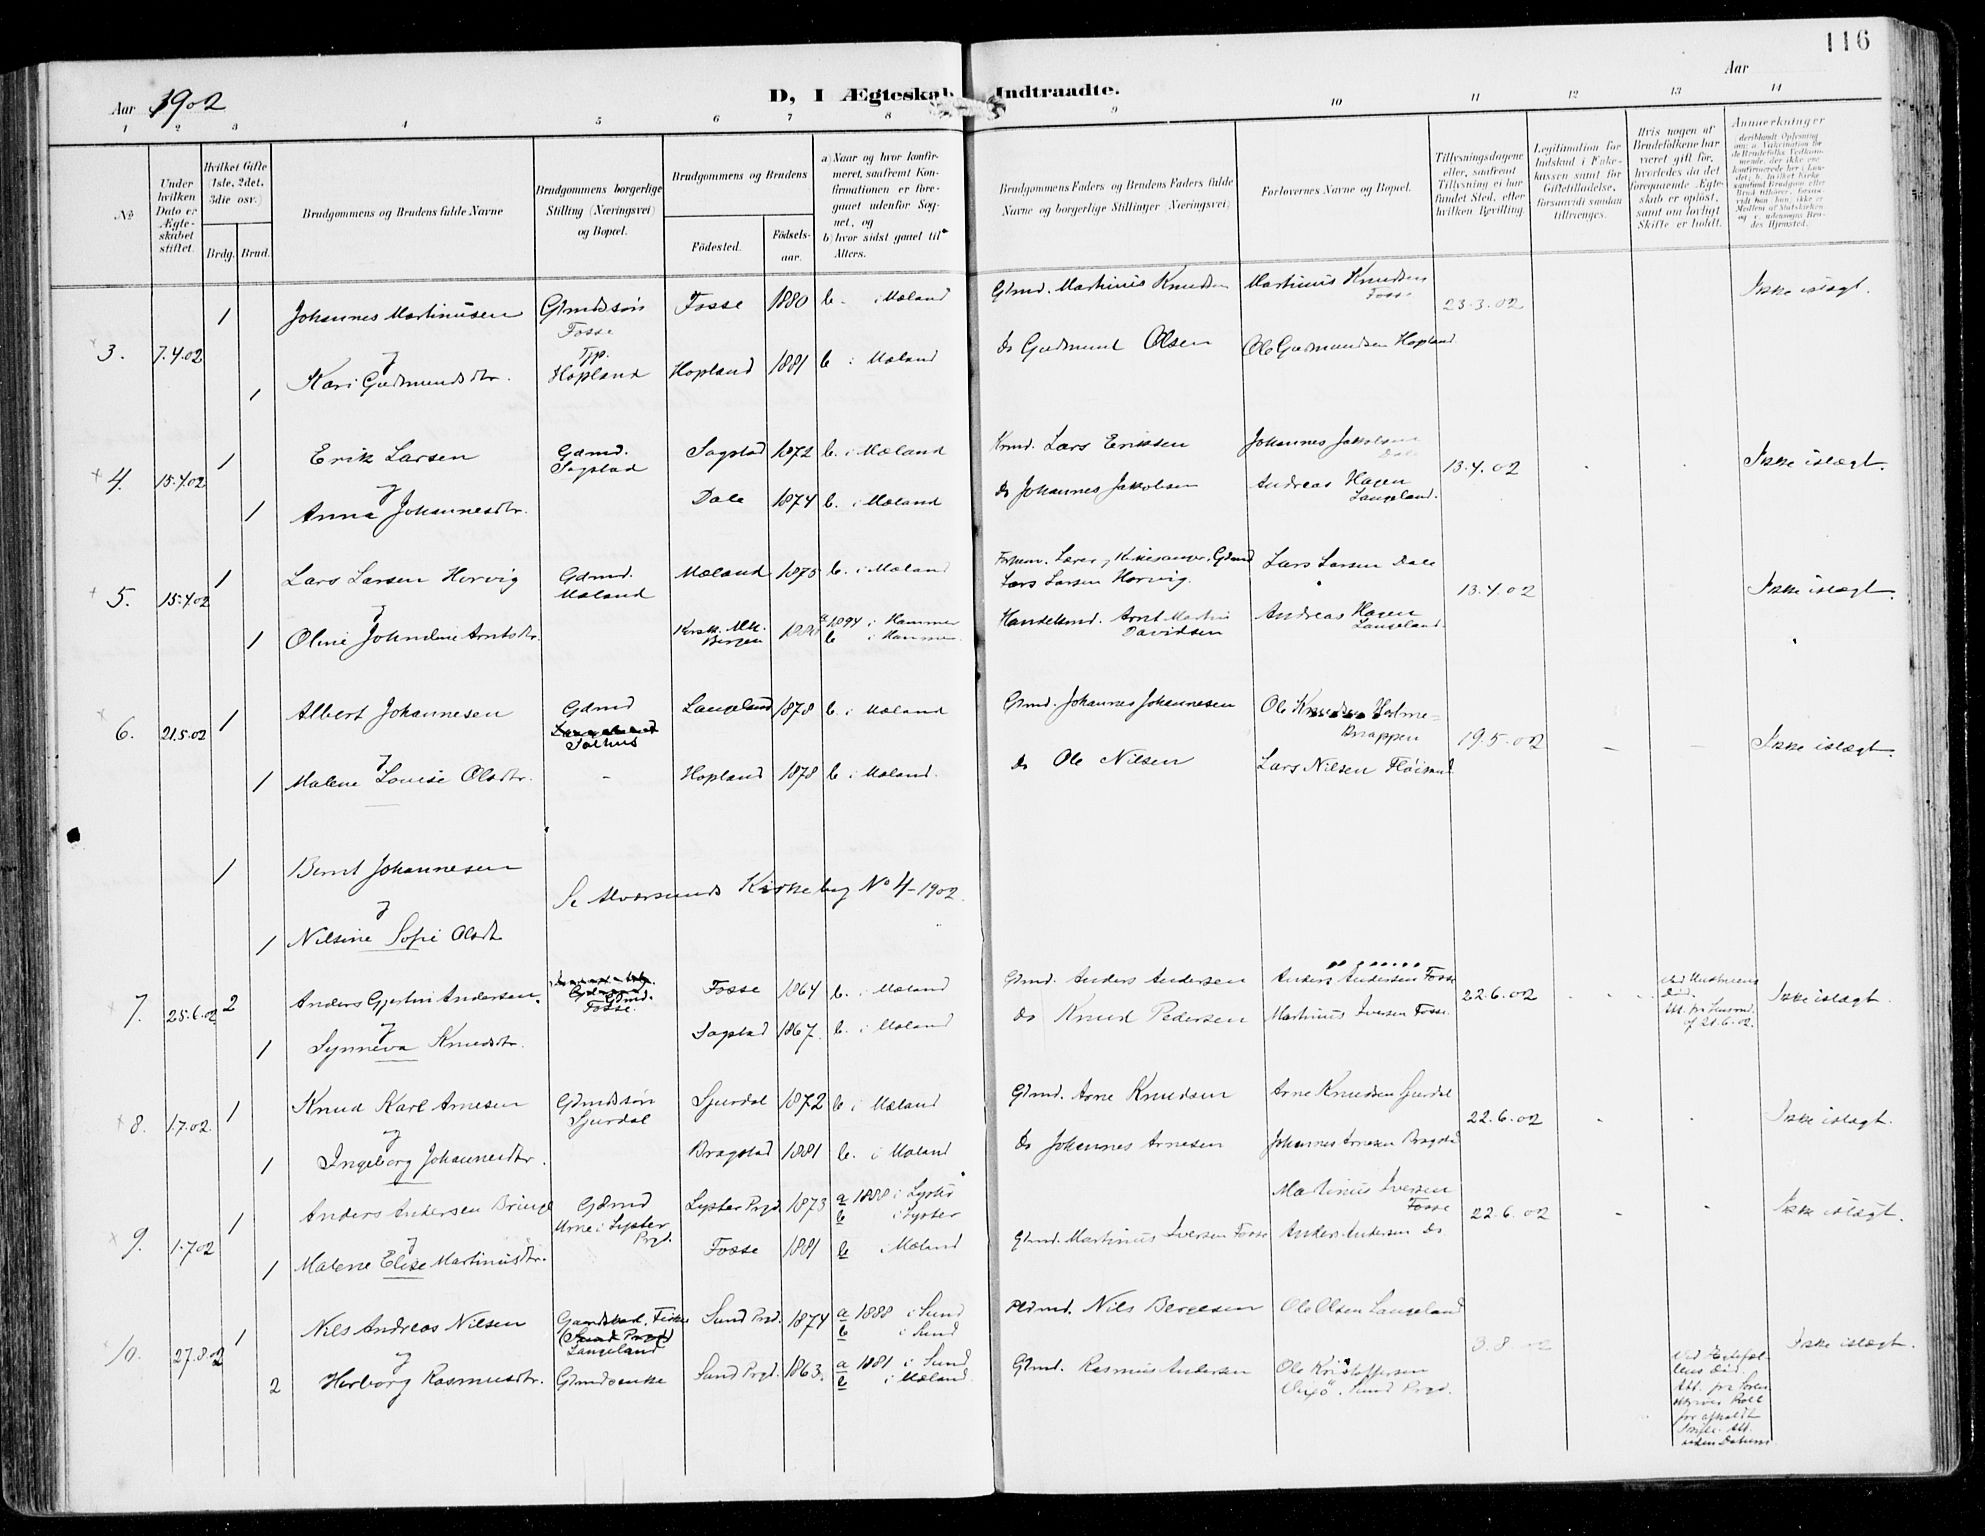 116
Aar 1902
D, I Ægteskab Indtraadte.
Aar
1 2 3 4 5 6 7 8 9 10 11 12 13 14
No
Under hvilken Dato er Ægteskabet stiftet.
Hvilket Gifte 1ste, 2det, 3die osv.)
Brdg. Brud.
Brudgommens og Brudens fulde Navne
Brudgommens borgerlige Stilling (Næringsvei) og Bopæl.
Brudgommens og Brudens
Födested.
Födsels-aar.
a) Naar og hvor konfirmeret, saafremt Konfirmationen er foregaaet udenfor Sognet, og
b) hvor sidst gaaet til Alters.
Brudgommens Faders og Brudens Faders fulde Navne og borgerlige Stillinger (Næringsvei)
Forlovernes Navne og Bopæl.
Tillysningsdagene eller, saafremt Tillysning ei har fundet Sted, efter hvilken Bevilling.
Legitimation for Indskud i Enkekassen samt for Giftetilladelse, forsaavidt saadan tiltrænges.
Hvis nogen af Brudefolkene har været gift för, hvorledes da det foregaaende Ægteskab er oplöst, samt om lovligt Skifte er holdt.
Anmerkninger
3. 7.4.02 1 Johannes Martinusen Gbmdssön Fosse Fosse 1880 b. i Mæland Gbmd. Martinus Knudsen Martinus Knudsen Fosse 23.3.02 Ikke islægt.
og
1 Kari Gudmundsdtr. Tjp. Hopland Hopland 1881 b i Mæland do Gudmund Olsen Ole Gudmundsen Hopland
4. 15.4.02 1 Erik Larsen Gdmd. Sagstad Sagstad 1872 b. i Mæland Lars Eriksen Johannes Jakobsen Dale 13.4.02 Ikke islægt.
og
1 Anna Johannesdtr. Dale 1874 b. i Mæland do Johannes Jakobsen Andreas Hagen Langeland.
5. 15.4.02 1 Lars Larsen Hervig Gdmd. Mæland Mæland 1875 b. i Mæland Lærer, Kirkesanger, Gbmd Lars Larsen Hervig. Lars Larsen Dale 13.4.02 Ikke islægt.
og
1 Oline Arntsdtr. Bergen a 1894 i Hammer b i Hammer Handelsmd. Arnt Martin Davidsen Andreas Hagen Langeland.
6. 21.5.02 1 Albert Johannesen Gdmd Langeland 1878 b. i Mæland Gbmd. Johannes Johannesen Ole 19.5.02 Ikke islægt.
og
1 Malene Louise Olsdtr. - Hopland 1878 b. i Mæland. do Ole Nilsen Lars Nilsen
1 Bernt Johannesen
og Se Alversunds Kirkebog No 4 - 1902.
1 Nilsine Sofie Olsdt
7. 25.6.02 2 Anders Gjertin Andersen. Gbmd. Fosse. Fosse 1864 b. i Mæland Gbmd. Anders Andersen Anders Andersen Fosse 22.6.02 Ikke islægt.
og
1 Synneva Knudsdtr. Sagstad 1867. b. i Mæland do Knud Pedersen Martinus Iversen Fosse.
8. 1.7.02 1 Knud Karl Arnesen Gbmdssön Sjurdal Sjurdal 1872 b i Mæland Gbmd. Arne Knudsen Arne Knudsen Sjurdal 22.6.02 Ikke islægt.
og
1 Ingeborg Johannesdtr. Bragstad 1881 b. i Mæland do Johannes Arnesen Johannes Arnesen Bragstad
9. 1.7.02 1 Anders Andersen Bringe Gdmd Urne i Lyster Prgd. Lyster Prgd. 1873 a 1888 i Lyster b i Lyster Martinus Iversen Fosse 22.6.02 Ikke islægt.
og
1 Malene Elise Martinusdtr. Fosse 1881 b i Mæland Gbmd. Martinus Iversen Fosse Anders Andersen do
10. 27.8.02 1 Nils Andreas Nilsen (Sund Prgd) Langeland Sund Prgd. 1874 a 1888 i Sund b i Sund Nils Bergesen Ole Olsen Langeland 3.8.02 Ikke islægt.
og
2 Herborg Rasmusdtr. Gbmdsenke Sund Prgd. 1863. a 1881 i Sund b i Mæland. Gbmd. Rasmus Andersen Ole Kristoffersen Sund Prgd.